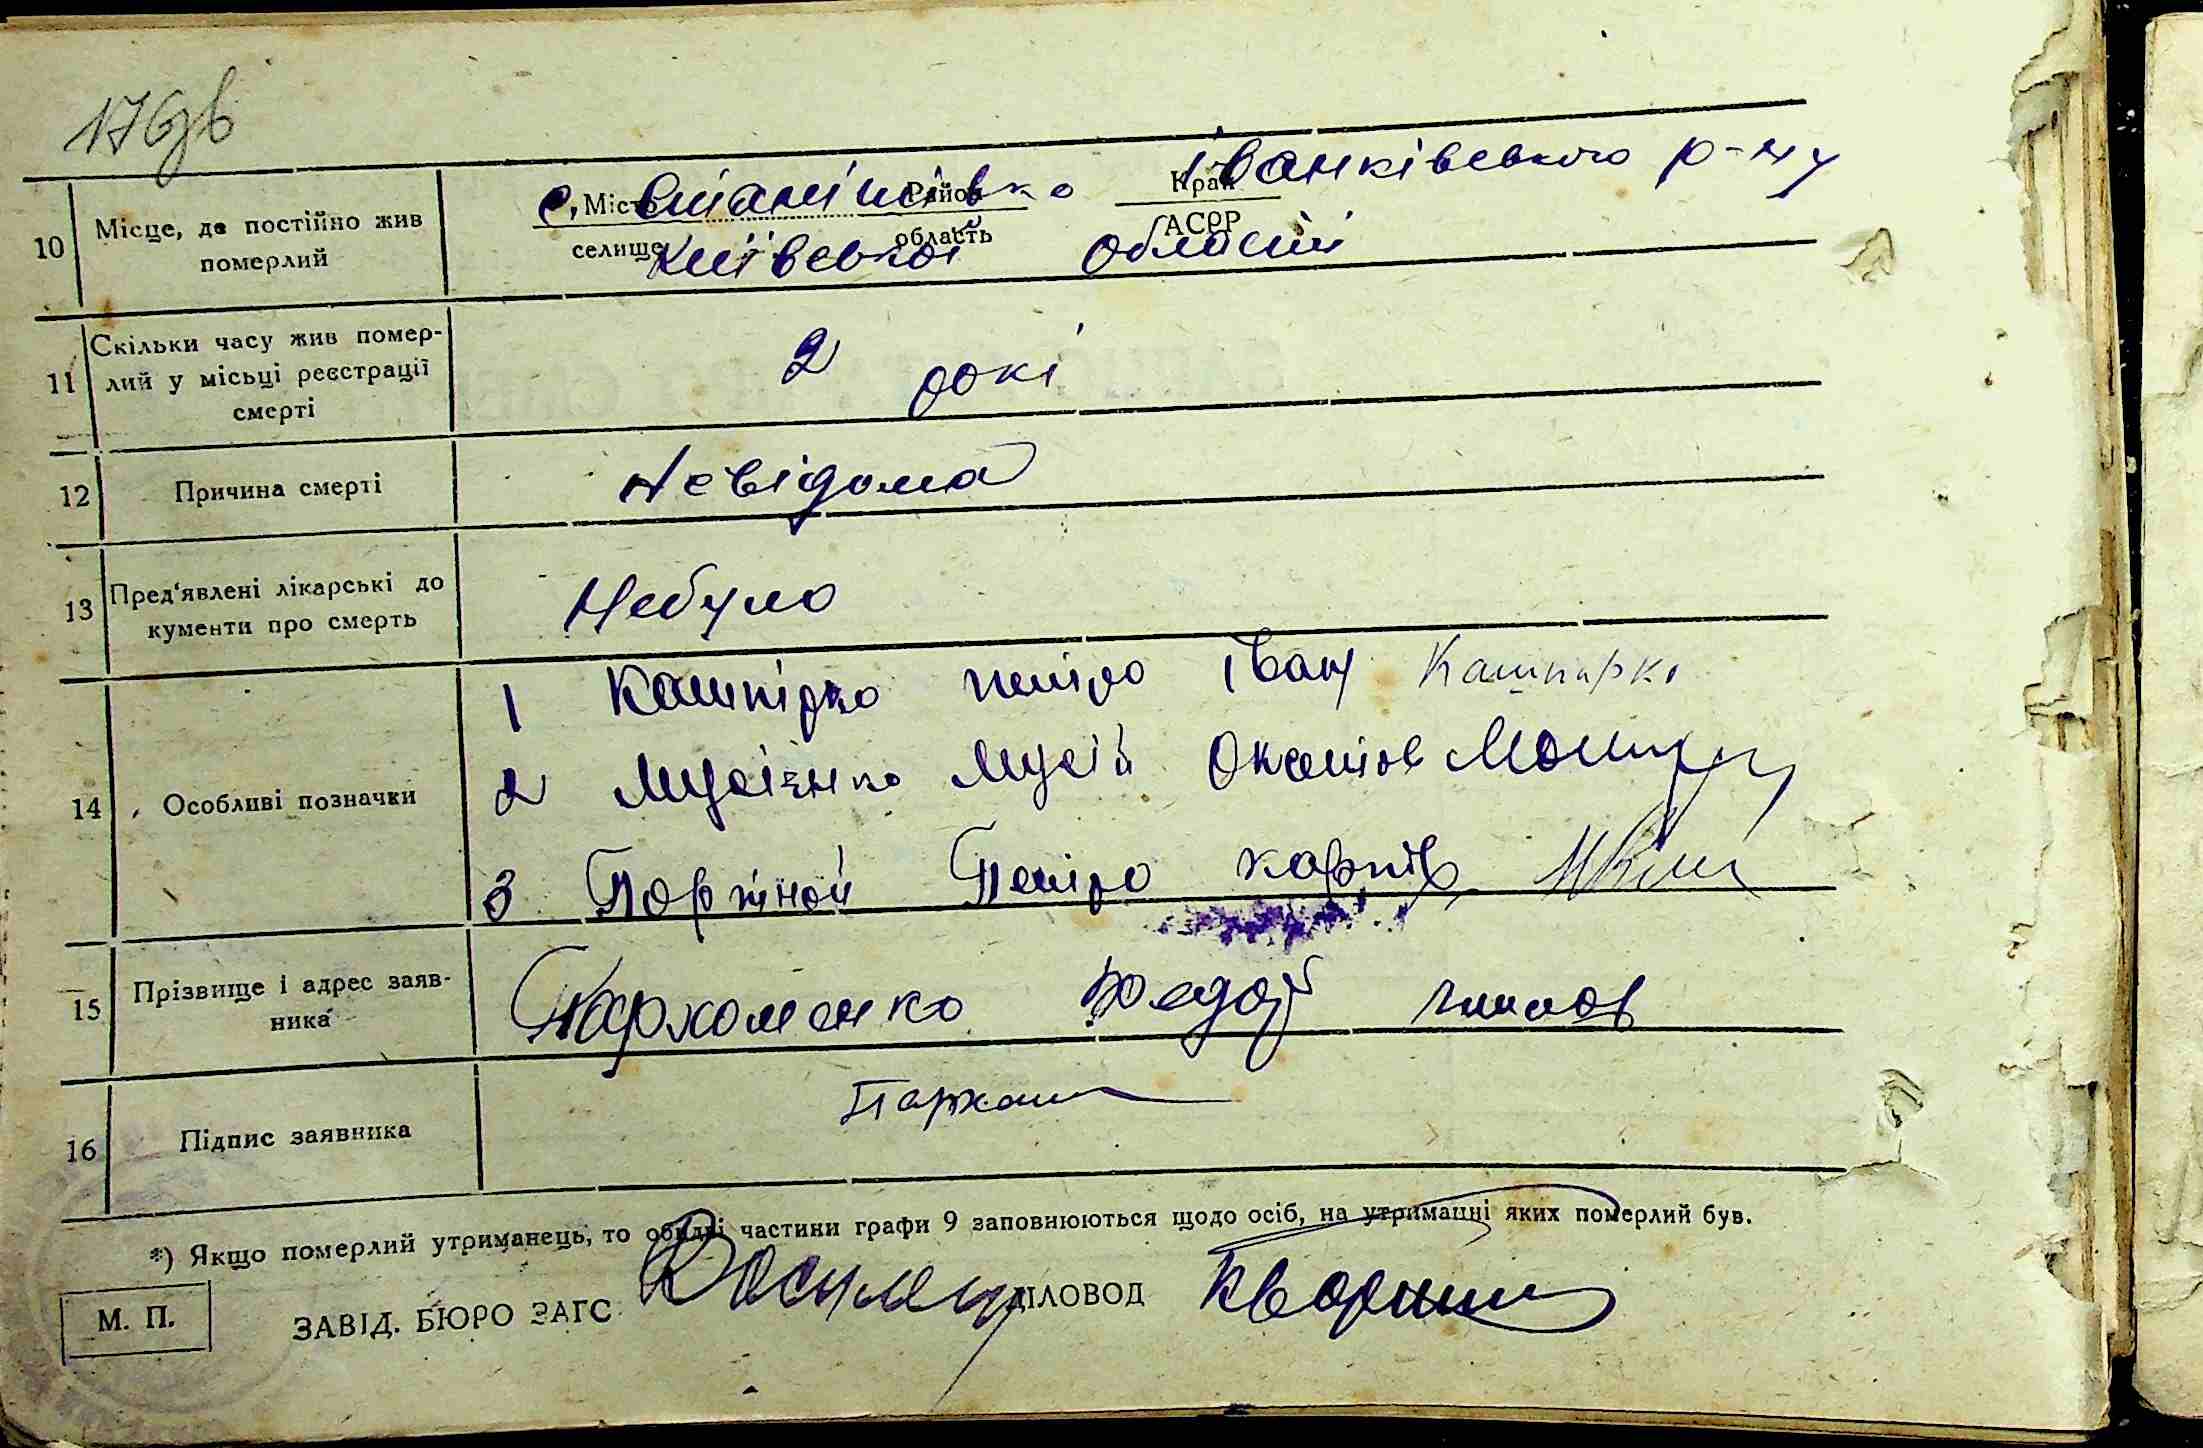 176зв
10 Місце, де постійно жив померлий
с. Місто Район Край Іванківського р-ну
селище область АСРР
Київської області
11 Скільки часу жив помер-
лий у місьці реєстрації
смерті
2 рокі
12 Причина смерті Невідома
13 Пред'явлені лікарські до
кументи про смерть
Небуло
14 Особливі позначки
1 Кашпірко петро Іван
2 Мусієнко Мусій
3 Портной Петро карпів
15 Прізвище і адрес заяв-
ника
Пархоменко Федор
16 Підпис заявника
*) Якщо померлий утриманець, то обидві частини графи 9 заповнюються щодо осіб, на утриманні яких померлий був.
М. П. ЗАВІД. БЮРО ЗАГС ДІЛОВОД